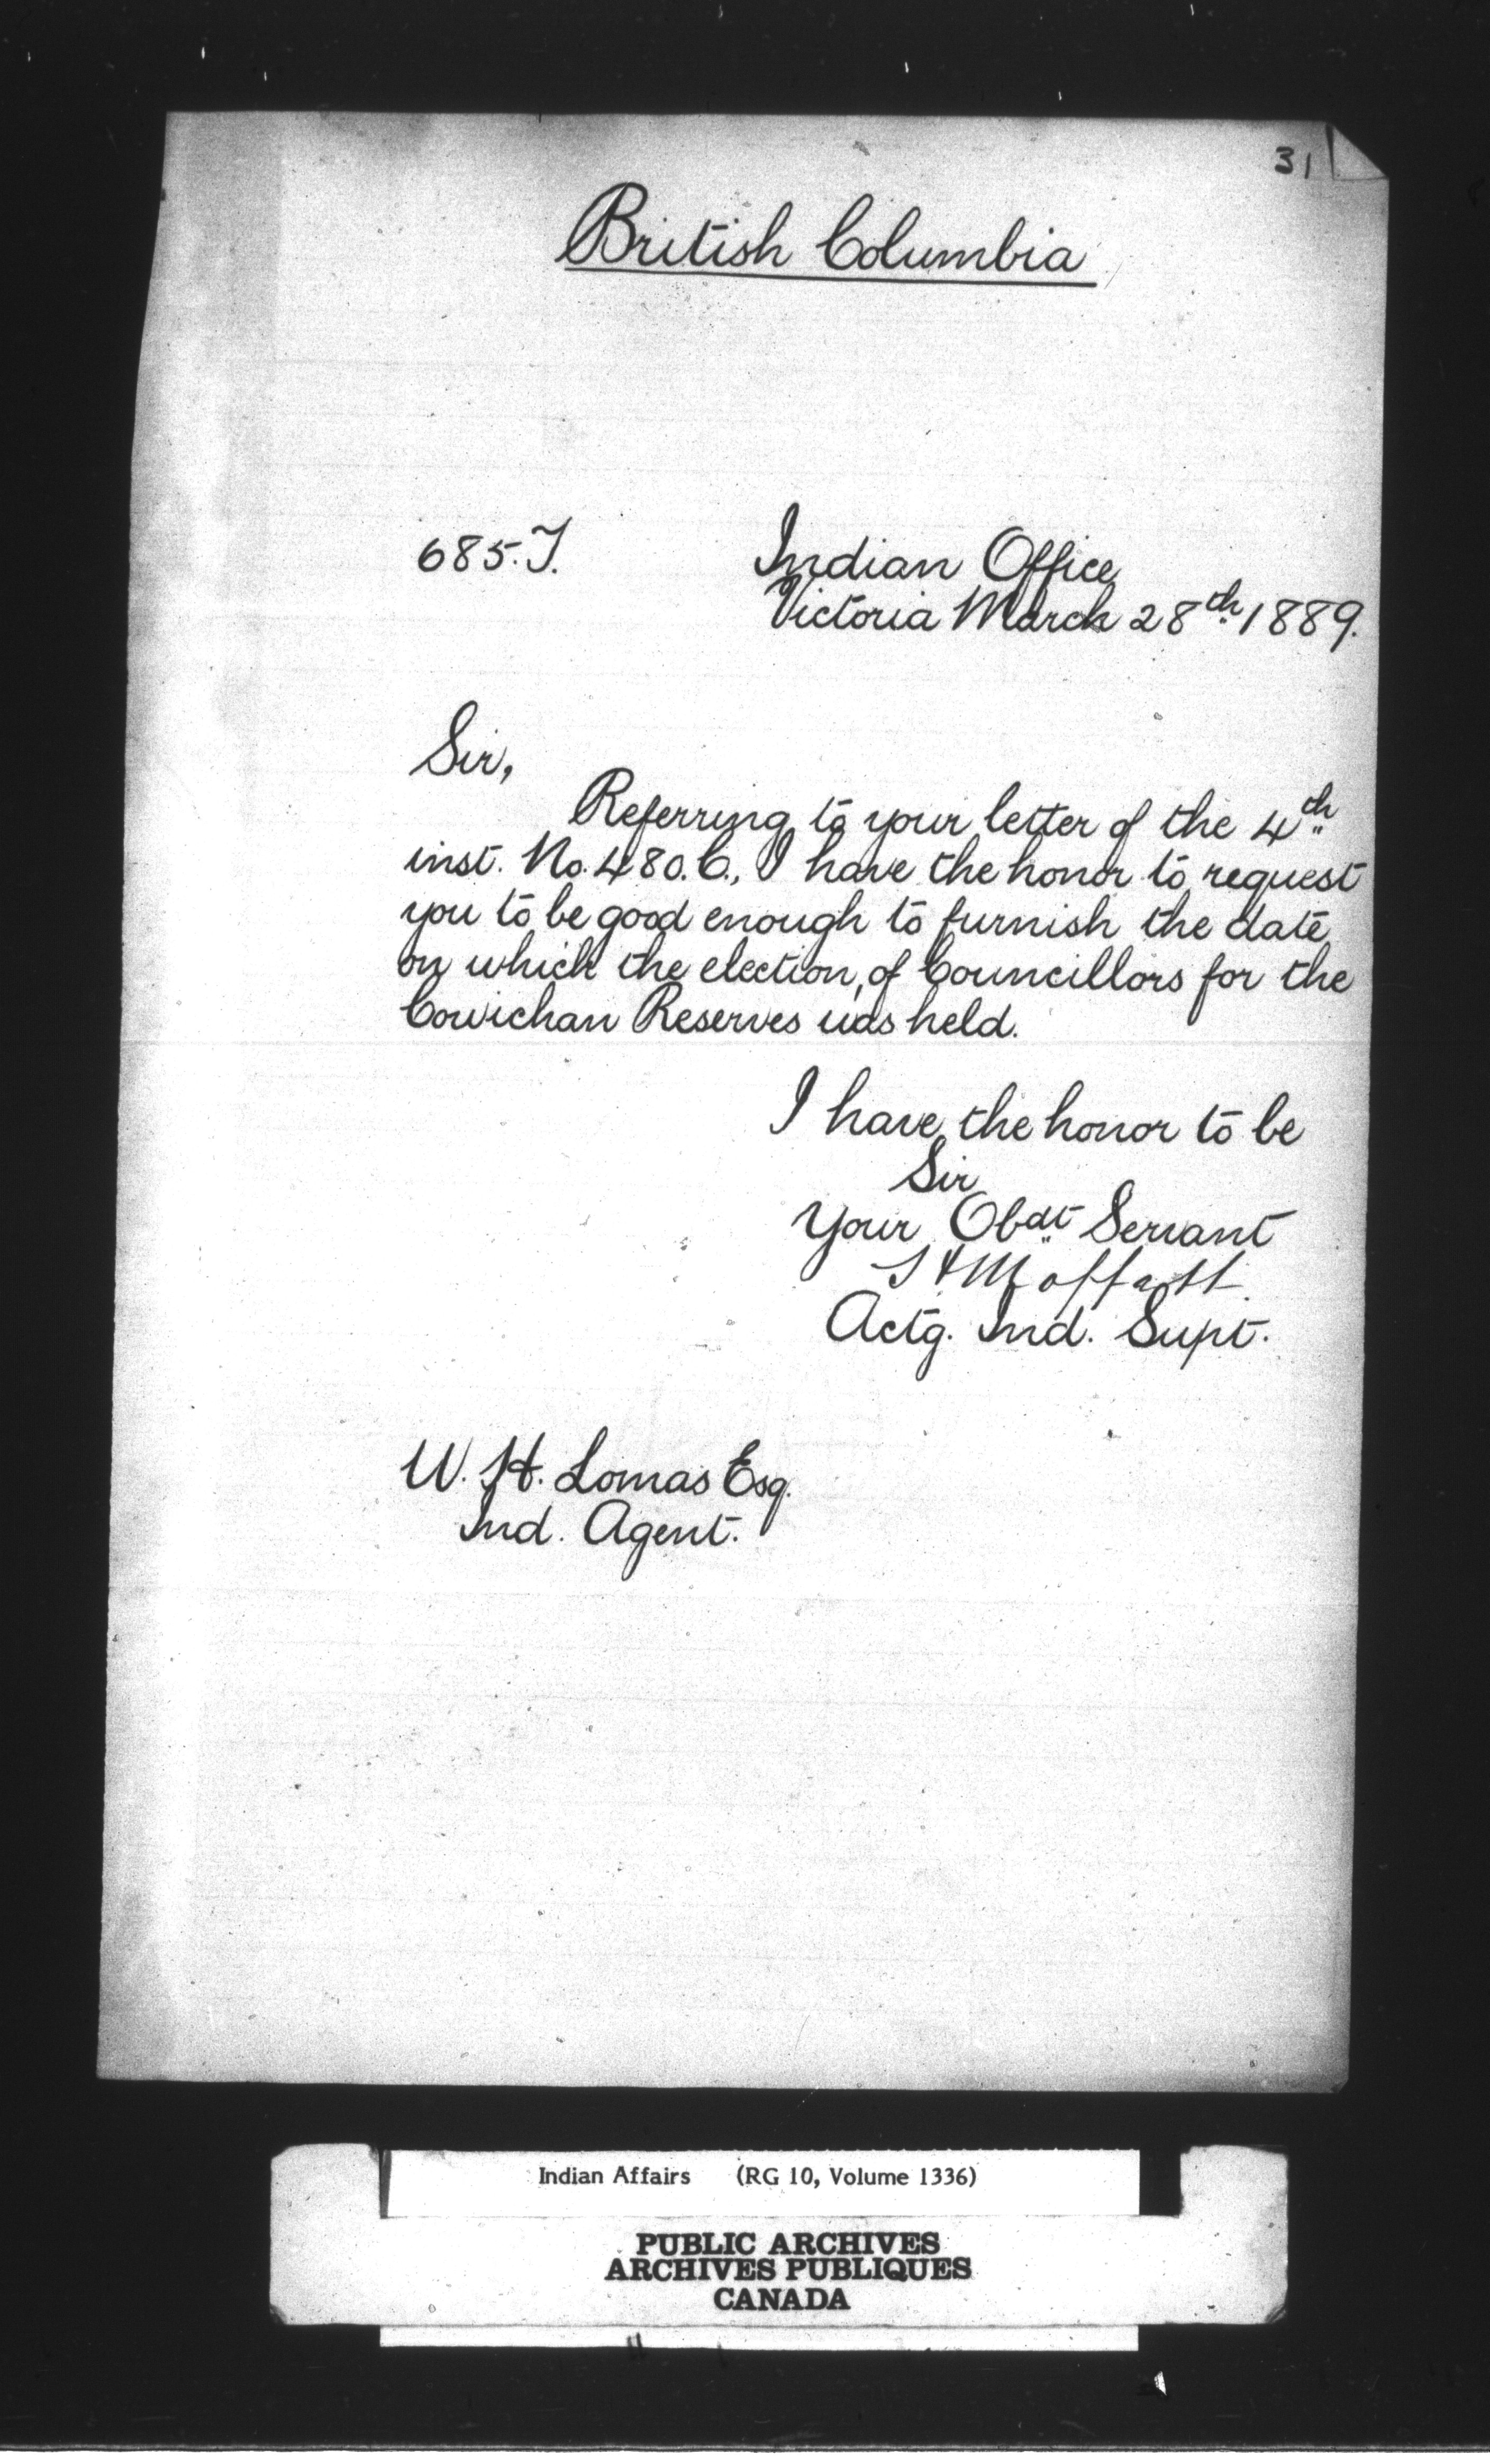 31
British Columbia
685.I. Indian Office
Victoria March 28th 1889.
Sir,
Referring to your letter of the 4th
inst. No. 480.C., I have the honor to request
you to be good enough to furnish the date
on which the election, of Councillors for the
Cowichan Reserves was held.
I have the honor to be
Sir
Your Obdt Servant
Moffatt.
Actg. Ind. Supt.
W. H. Lomas Esq.
Ind. Agent.
Indian Affairs (RG 10, Volume 1336)
PUBLIC ARCHIVES
ARCHIVES PUBLIQUES
CANADA